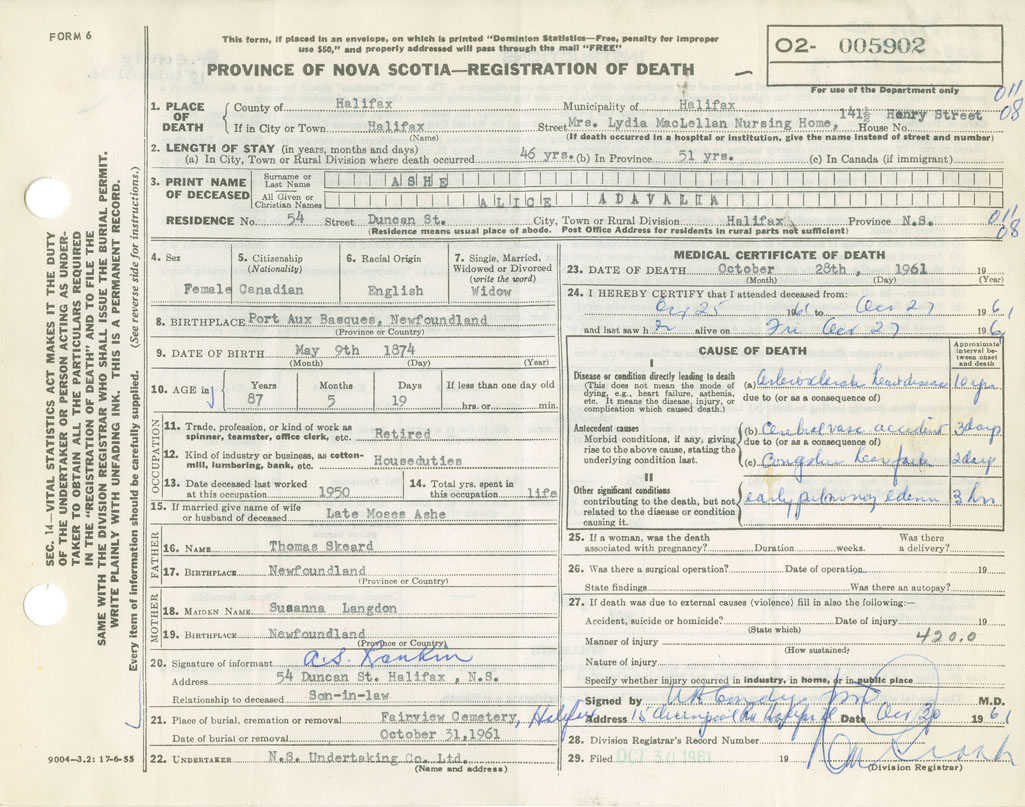 FORM 6
This form, if placed in an envelope, on which is printed "Dominion Statistics—Free, penalty for improper
use $50," and properly addressed will pass through the mail "FREE"
PROVINCE OF NOVA SCOTIA—REGISTRATION OF DEATH
02- 005902
For use of the Department only
011
08
SEC. 14—VITAL STATISTICS ACT MAKES IT THE DUTY
OF THE UNDERTAKER OR PERSON ACTING AS UNDER-
TAKER TO OBTAIN ALL THE PARTICULARS REQUIRED
IN THE "REGISTRATION OF DEATH" AND TO FILE THE
SAME WITH THE DIVISION REGISTRAR WHO SHALL ISSUE THE BURIAL PERMIT.
WRITE PLAINLY WITH UNFADING INK. THIS IS A PERMANENT RECORD.
Every item of information should be carefully supplied. (See reverse side for instructions.)
1. PLACE OF DEATH County of Halifax Municipality of Halifax
If in City or Town Halifax Street Mrs. Lydia MacLellan Nursing Home, House No. 141½ Henry Street
(Name) (If death occurred in a hospital or institution, give the name instead of street and number)
2. LENGTH OF STAY (in years, months and days)
(a) In City, Town or Rural Division where death occurred 46 yrs. (b) In Province 51 yrs. (c) In Canada (if immigrant)
3. PRINT NAME OF DECEASED Surname or Last Name ASHE
All Given or Christian Names ALICE ADAVALIA
RESIDENCE No. 54 Street Duncan St. City, Town or Rural Division Halifax Province N.S.
(Residence means usual place of abode. Post Office Address for residents in rural parts not sufficient)
011
08
4. Sex Female
5. Citizenship (Nationality) Canadian
6. Racial Origin English
7. Single, Married, Widowed or Divorced (write the word) Widow
8. BIRTHPLACE Port Aux Basques, Newfoundland
(Province or Country)
9. DATE OF BIRTH May 9th 1874
(Month) (Day) (Year)
10. AGE in Years 87 Months 5 Days 19 If less than one day old hrs. or min.
OCCUPATION
11. Trade, profession, or kind of work as spinner, teamster, office clerk, etc. Retired
12. Kind of industry or business, as cotton-mill, lumbering, bank, etc. Houseduties
13. Date deceased last worked at this occupation 1950
14. Total yrs. spent in this occupation life
15. If married give name of wife or husband of deceased Late Moses Ashe
FATHER
16. NAME Thomas Skeard
17. BIRTHPLACE Newfoundland
(Province or Country)
MOTHER
18. MAIDEN NAME. Susanna Langdon
19. BIRTHPLACE Newfoundland
(Province or Country)
20. Signature of informant A.S. Rankin
Address 54 Duncan St. Halifax , N.S.
Relationship to deceased Son-in-law
21. Place of burial, cremation or removal Fairview Cemetery, Halifax
Date of burial or removal October 31,1961
22. UNDERTAKER N.S. Undertaking Co. Ltd.
(Name and address)
9004—3.2: 17-6-55
MEDICAL CERTIFICATE OF DEATH
23. DATE OF DEATH October 28th , 1961 19
(Month) (Day) (Year)
24. I HEREBY CERTIFY that I attended deceased from:
Oct 25 1961 to Oct 27 1961
and last saw her alive on Fri Oct 27 196
CAUSE OF DEATH
Approximate interval between onset and death
I
Disease or condition directly leading to death
(This does not mean the mode of dying, e.g., heart failure, asthenia, etc. It means the disease, injury, or complication which caused death.)
(a) Arteriosclerotic heart disease 10 yrs
due to (or as a consequence of)
Antecedent causes
Morbid conditions, if any, giving rise to the above cause, stating the underlying condition last.
(b) Cerebral vasc accident 3 days
due to (or as a consequence of)
(c) Congestive heart failure 2 days
II
Other significant conditions
contributing to the death, but not related to the disease or condition causing it.
early pulmonary edema 3 hrs
25. If a woman, was the death associated with pregnancy? Duration weeks. Was there a delivery?
26. Was there a surgical operation? Date of operation 19
State findings Was there an autopsy?
27. If death was due to external causes (violence) fill in also the following:—
Accident, suicide or homicide? Date of injury 19
(State which)
Manner of injury 420.0
(How sustained)
Nature of injury
Specify whether injury occurred in industry, in home, or in public place
Signed by M.D.
Address Date Oct 30 1961
28. Division Registrar's Record Number
29. Filed OCT 30 1961 19
(Division Registrar)